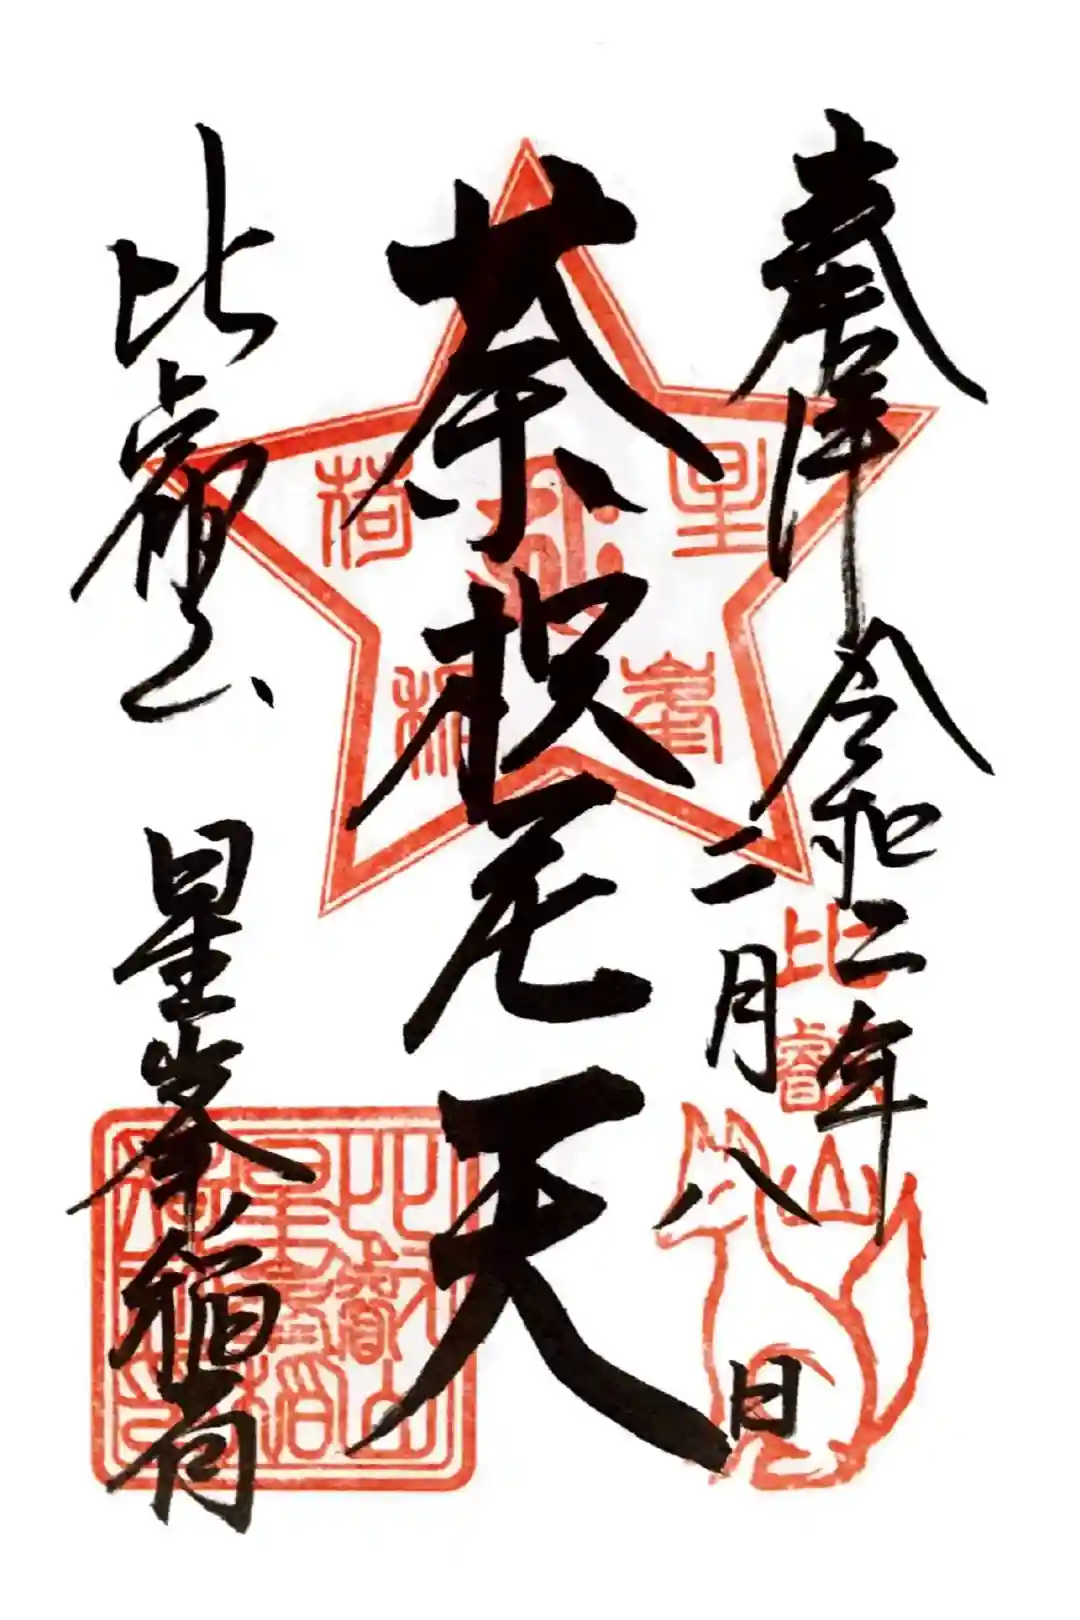 奉拝 令和二年
二月八日
荼枳尼天
比叡山 星峯稲荷
星峯稲荷
比叡山
比叡山
星峯稲
荷